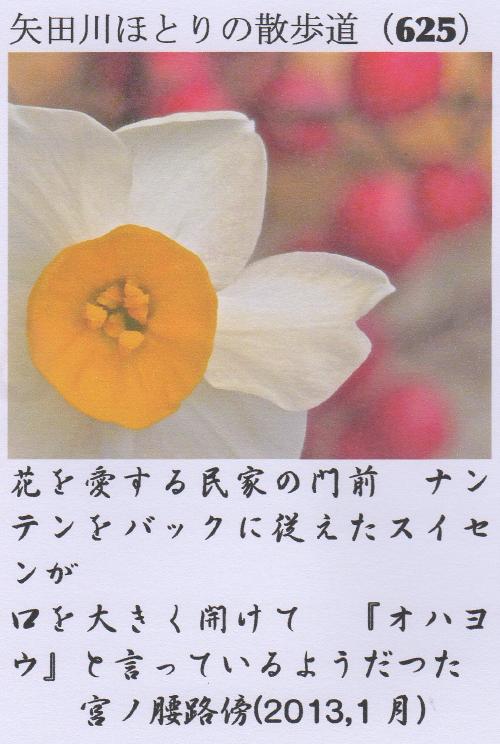 矢田川ほとりの散歩道（625）
花を愛する民家の門前　ナン
テンをバックに従えたスイセ
ンが
口を大きく開けて　『オハヨ
ウ』と言っているようだつた
宮ノ腰路傍(2013,1月)